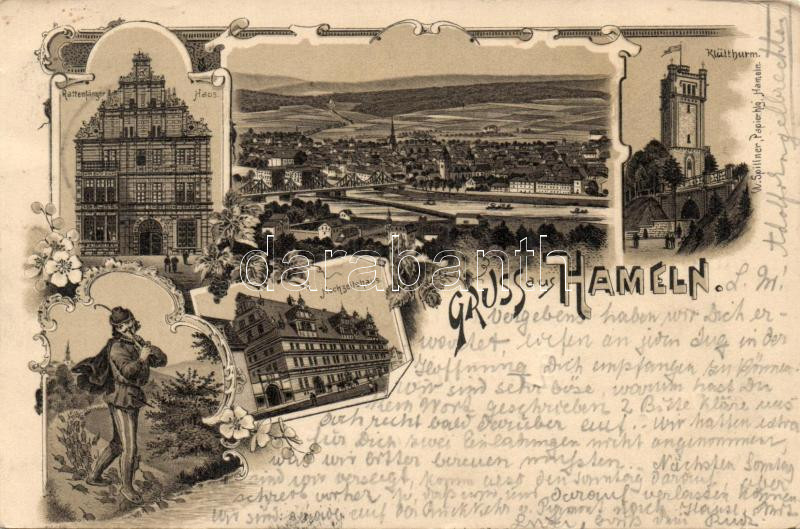 Rattenfänger
Haus.
Klütthurm.
W. Spillner, Papierhlg. Hameln.
Hochzeitshaus
GRUSS aus HAMELN.
darabanth.com
L. M.
Vergebens haben wir Dich er-
wartet, liefen an jeden Zug in der
Hoffnung Dich empfangen zu können.
Wir sind sehr böse, warum hast Du
kein Wort geschrieben? Bitte kläre uns
recht bald darüber auf. Wir hatten extra
für Dich zwei Einladungen nicht angenommen,
was wir bitter bereuen mussten. Nächsten Sonntag
sind wir versagt, komm also den Sonntag darauf, aber
schreib vorher, daß wir uns darauf verlassen können.
Wir sind gerade auf der Rückkehr v. Pyrmont nach Hause,